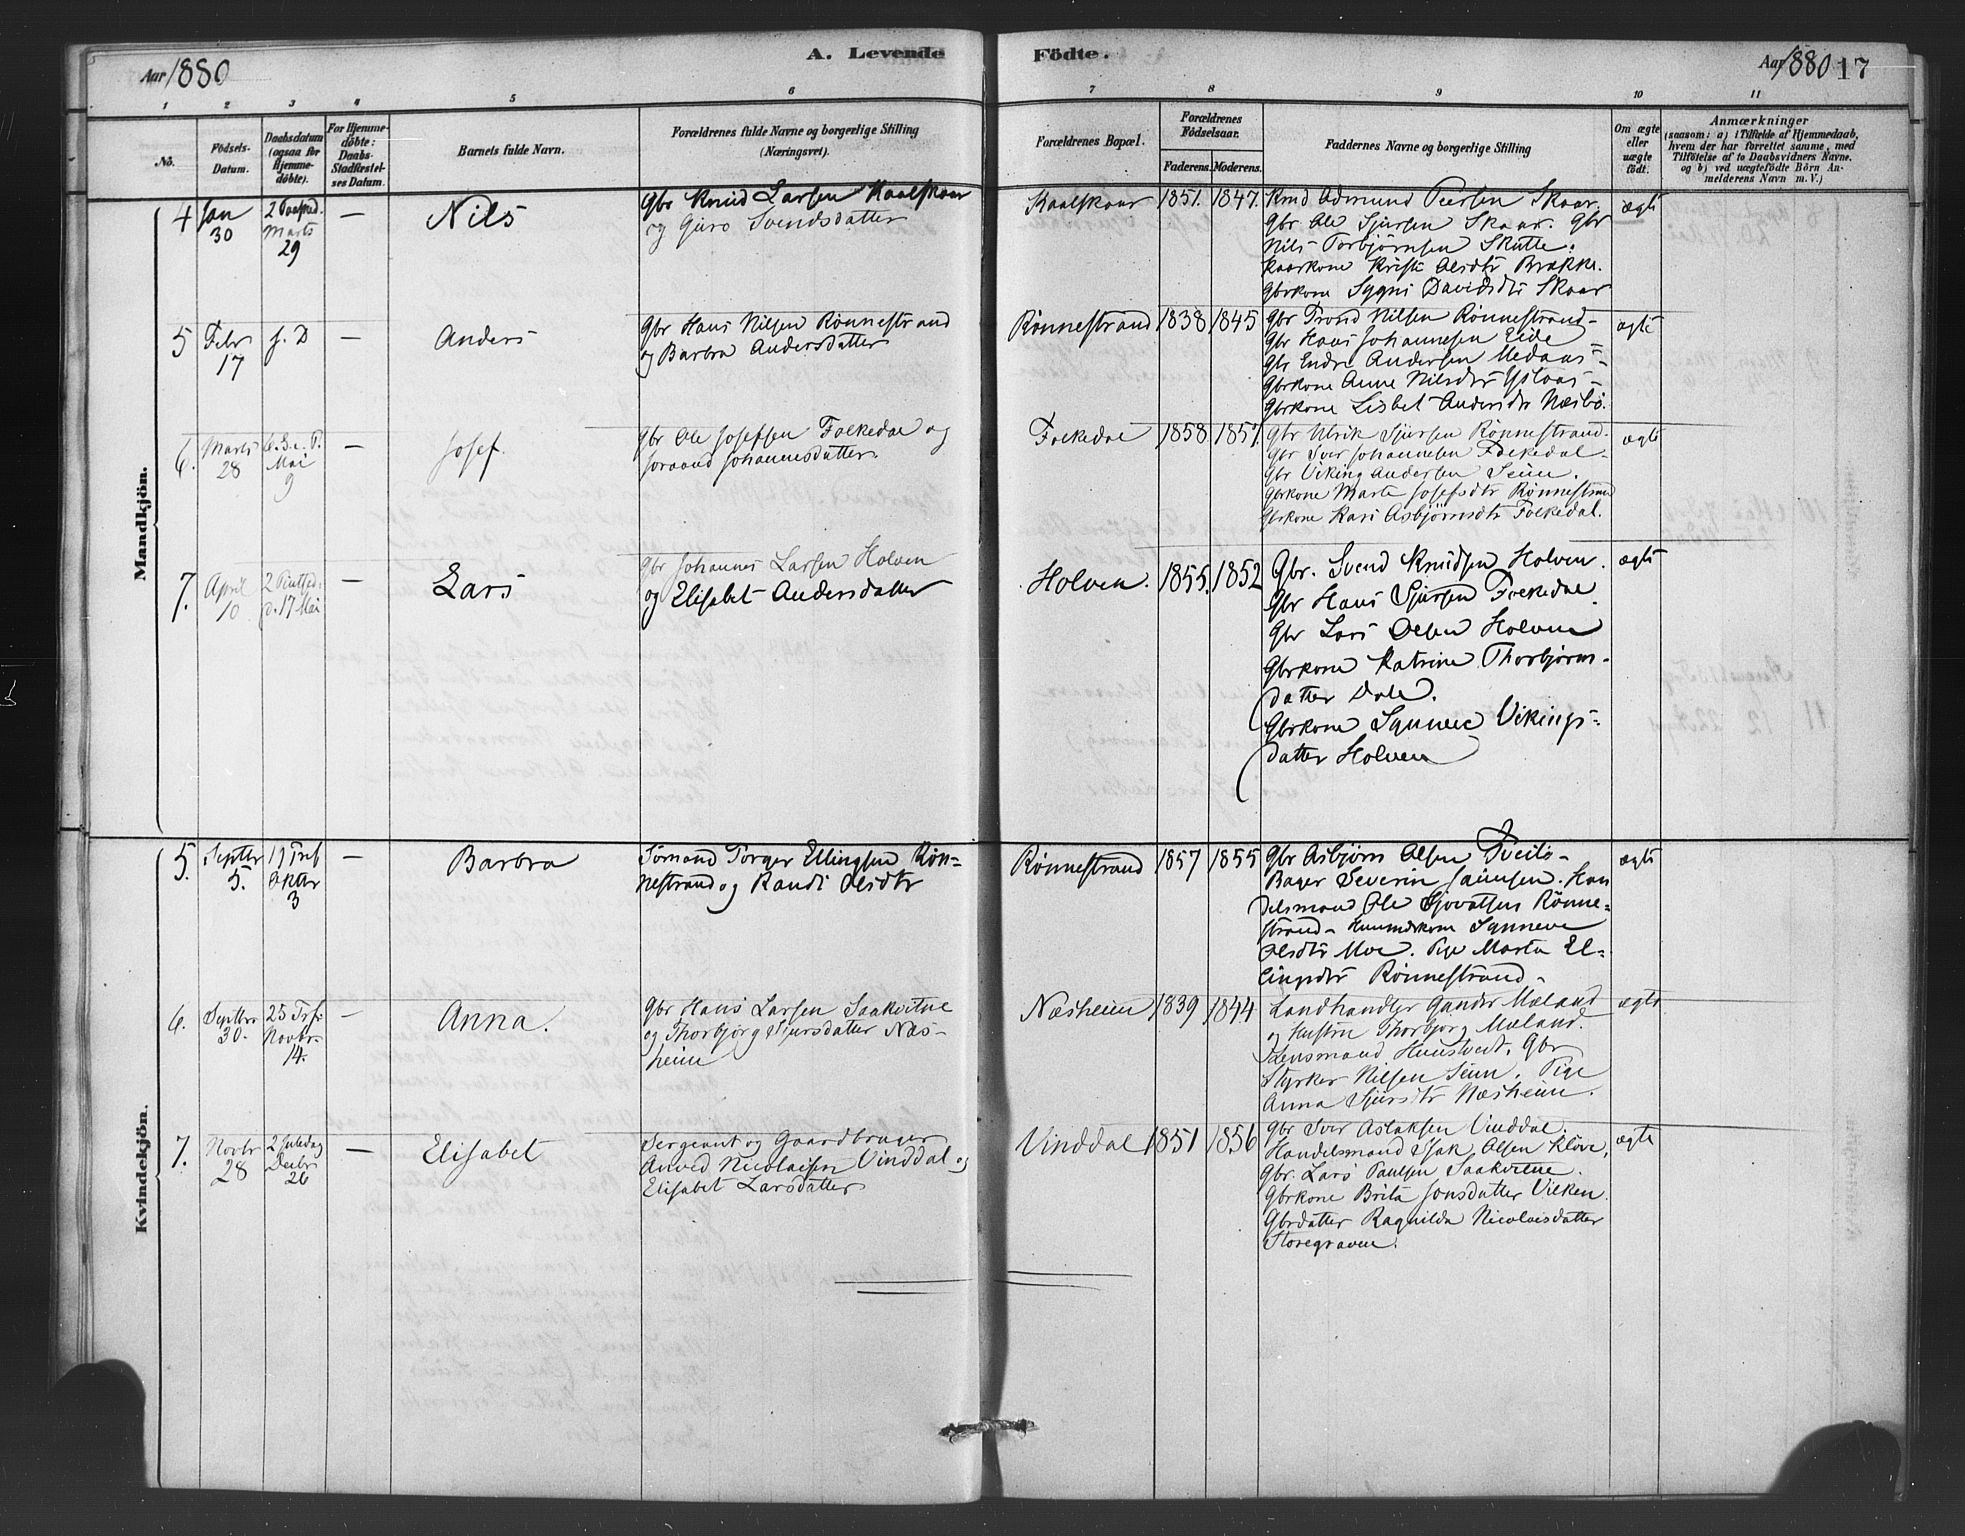 Aar 1880
A. Levende Födte.
Aar 1880 17
1 2 3 4 5 6 7 8 9 10 11
No.
Födsels-Datum.
Daabsdatum (ogsaa for Hjemme-döbte).
For Hjemme-döbte: Daabs-Stadfæstel-ses Datum.
Barnets fulde Navn.
Forældrenes fulde Navne og borgerlige Stilling
(Næringsvei).
Forældrenes Bopæl.
Forældrenes Födselsaar.
Faderens. Moderens.
Faddernes Navne og borgerlige Stilling
Om ægte eller uægte födt.
Anmærkninger
(saasom: a) i Tilfælde af Hjemmedaab,
hvem der har forrettet samme, med
Tilföielse af to Daabsvidners Navne.
og b) ved uægtefödte Börn An-
melderens Navn m. V.)
Mandkjön.
4 Jan 30
2 Marts 29
—
Nils
Gbr Knud Larsen Kaalskaar
og Guro Svendsdatter
Kaalskaar 1851. 1847.
Knud Admund Peersen Skaar.
Gbr Ole Sjursen Skaar. Gbr
Nils Torbjørnsen Skutte.
Kaarkone Kristi Olsdtr Brække.
Gbrkone Sygni Davidsdtr Skaar
ægte
5 Febr 17
f. D
—
Anders
Gbr Hans Nilsen Rønnestrand
og Barbra Andersdatter
Rønnestrand 1838 1845
Gbr Trond Nilsen Rønnestrand-
Gbr Hans Johannesen Eide
Gbr Endre Andersen Medaas-
Gbrkone Anne Nilsdtr Ystaas-
Gbrkone Lisbet Andersdtr Næsbø.
ægte
6. Marts 28
6. S. e. P. Mai 9
—
Josef
Gbr Ole Josefsen Folkedal og
Joraand Johannesdatter
Folkedal 1858. 1857.
Gbr Ulrik Sjursen Rønnestrand.
Gbr Siver Johannesen Folkedal-
Gbr Viking Andersen Seim.
Gbrkone Marta Josefsdtr Rønnestrand
Gbrkone Kari Asbjørnsdtr Folkedal.
ægte
7. April 10
2 Pintsed: d. 17 Mai
—
Lars
Gbr Johannes Larsen Holven
og Elisabet Andersdatter
Holven. 1855. 1852
Gbr. Svend Knudsen Holven.
Gbr Hans Sjursen Folkedal.
Gbr Lars Olsen Holven
Gbrkone Katrine Thorbjørns-
datter Dale.
Gbrkone Synneve Vikings-
datter Holven
ægte
Kvindekjön.
5. Septbr 5.
19 Tref Oktbr 3
—
Barbra
Sømand Torger Ellingsen Røn-
nestrand og Randi Olsdtr
Rønnestrand 1857 1855
Gbr Asbjørn Olsen Tveito-
Bager Severin Han
delsmand Ole Rønne-
strand- Huusmdskone Synneve
Olsdtr Moe. Pige Marta El-
lingsdtr Rønnestrand-
ægte
6. Septbr. 30.
25 Tref: Novbr. 14.
—
Anna.
Gbr Hans Larsen Saakvitne
og Thorbjørg Sjursdatter Næs-
heim
Næsheim 1839 1844
Landhandler Mæland
og Hustru Thorbjørg Mæland.
Lensmand Huustvedt, Gbr
Styrker Nilsen Seim. Pige
Anna Sjursdtr Næsheim.
ægte
7. Novbr 28
2 Juledag Decbr 26
—
Elisabet
Sergeant og Gaardbruger
Anved Nicolaisen Vinddal og
Elisabet Larsdatter
Vinddal 1851 1856
Gbr Siver Aslaksen Vinddal.
Handelsmand Isak Olsen Kløve,
Gbr. Lars Paulsen Saakvitne.
Gbrkone Brita Jonsdatter Vilken.
Gbrdatter Ragnilda Nicolaisdatter
Storegraven.
ægte